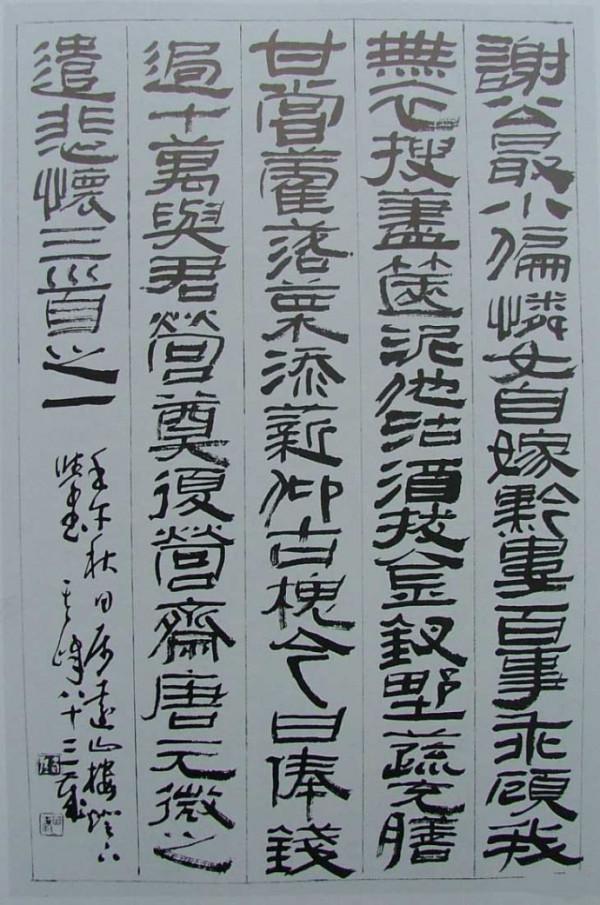 謝公最小偏憐女自嫁黔婁百事乖顧我
無衣搜藎篋泥他沽酒拔金釵野蔬充膳
甘嘗藿落葉添薪仰古槐今日俸錢
過十萬與君營奠復營齋唐元微之
遣悲懷三首之一
壬午秋日 山樓燈下
書其峰八十三歲